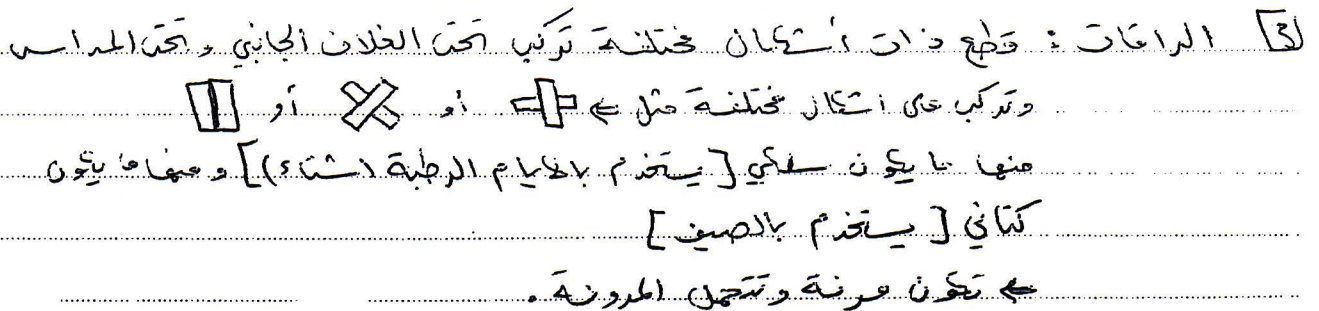 [3] الراقات : قطع ذات أشكال مختلفة تركب تحت الغلاف الجانبي وتحت المداس
وتركب على اشكال مختلفة مثل ← أو أو
منها ما يكون سلكي [يستخدم بالايام الرطبة (شتاء)] ومنها ما يكون
كتاني [يستخدم بالصيف]
← تكون مرنة وتتحمل المرونة .